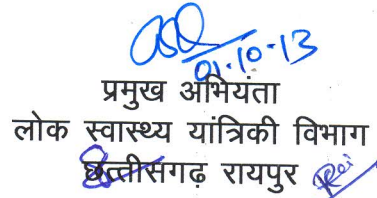 01.10.13
प्रमुख अभियंता
लोक स्वास्थ्य यांत्रिकी विभाग
छत्तीसगढ़ रायपुर